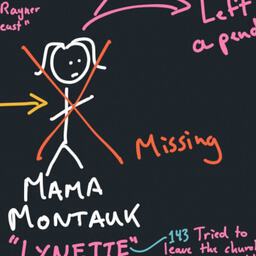 Rayner
east"
Left
a pend
Missing
MAMA
MONTAUK
"LYNETTE"
143 Tried to
leave the church